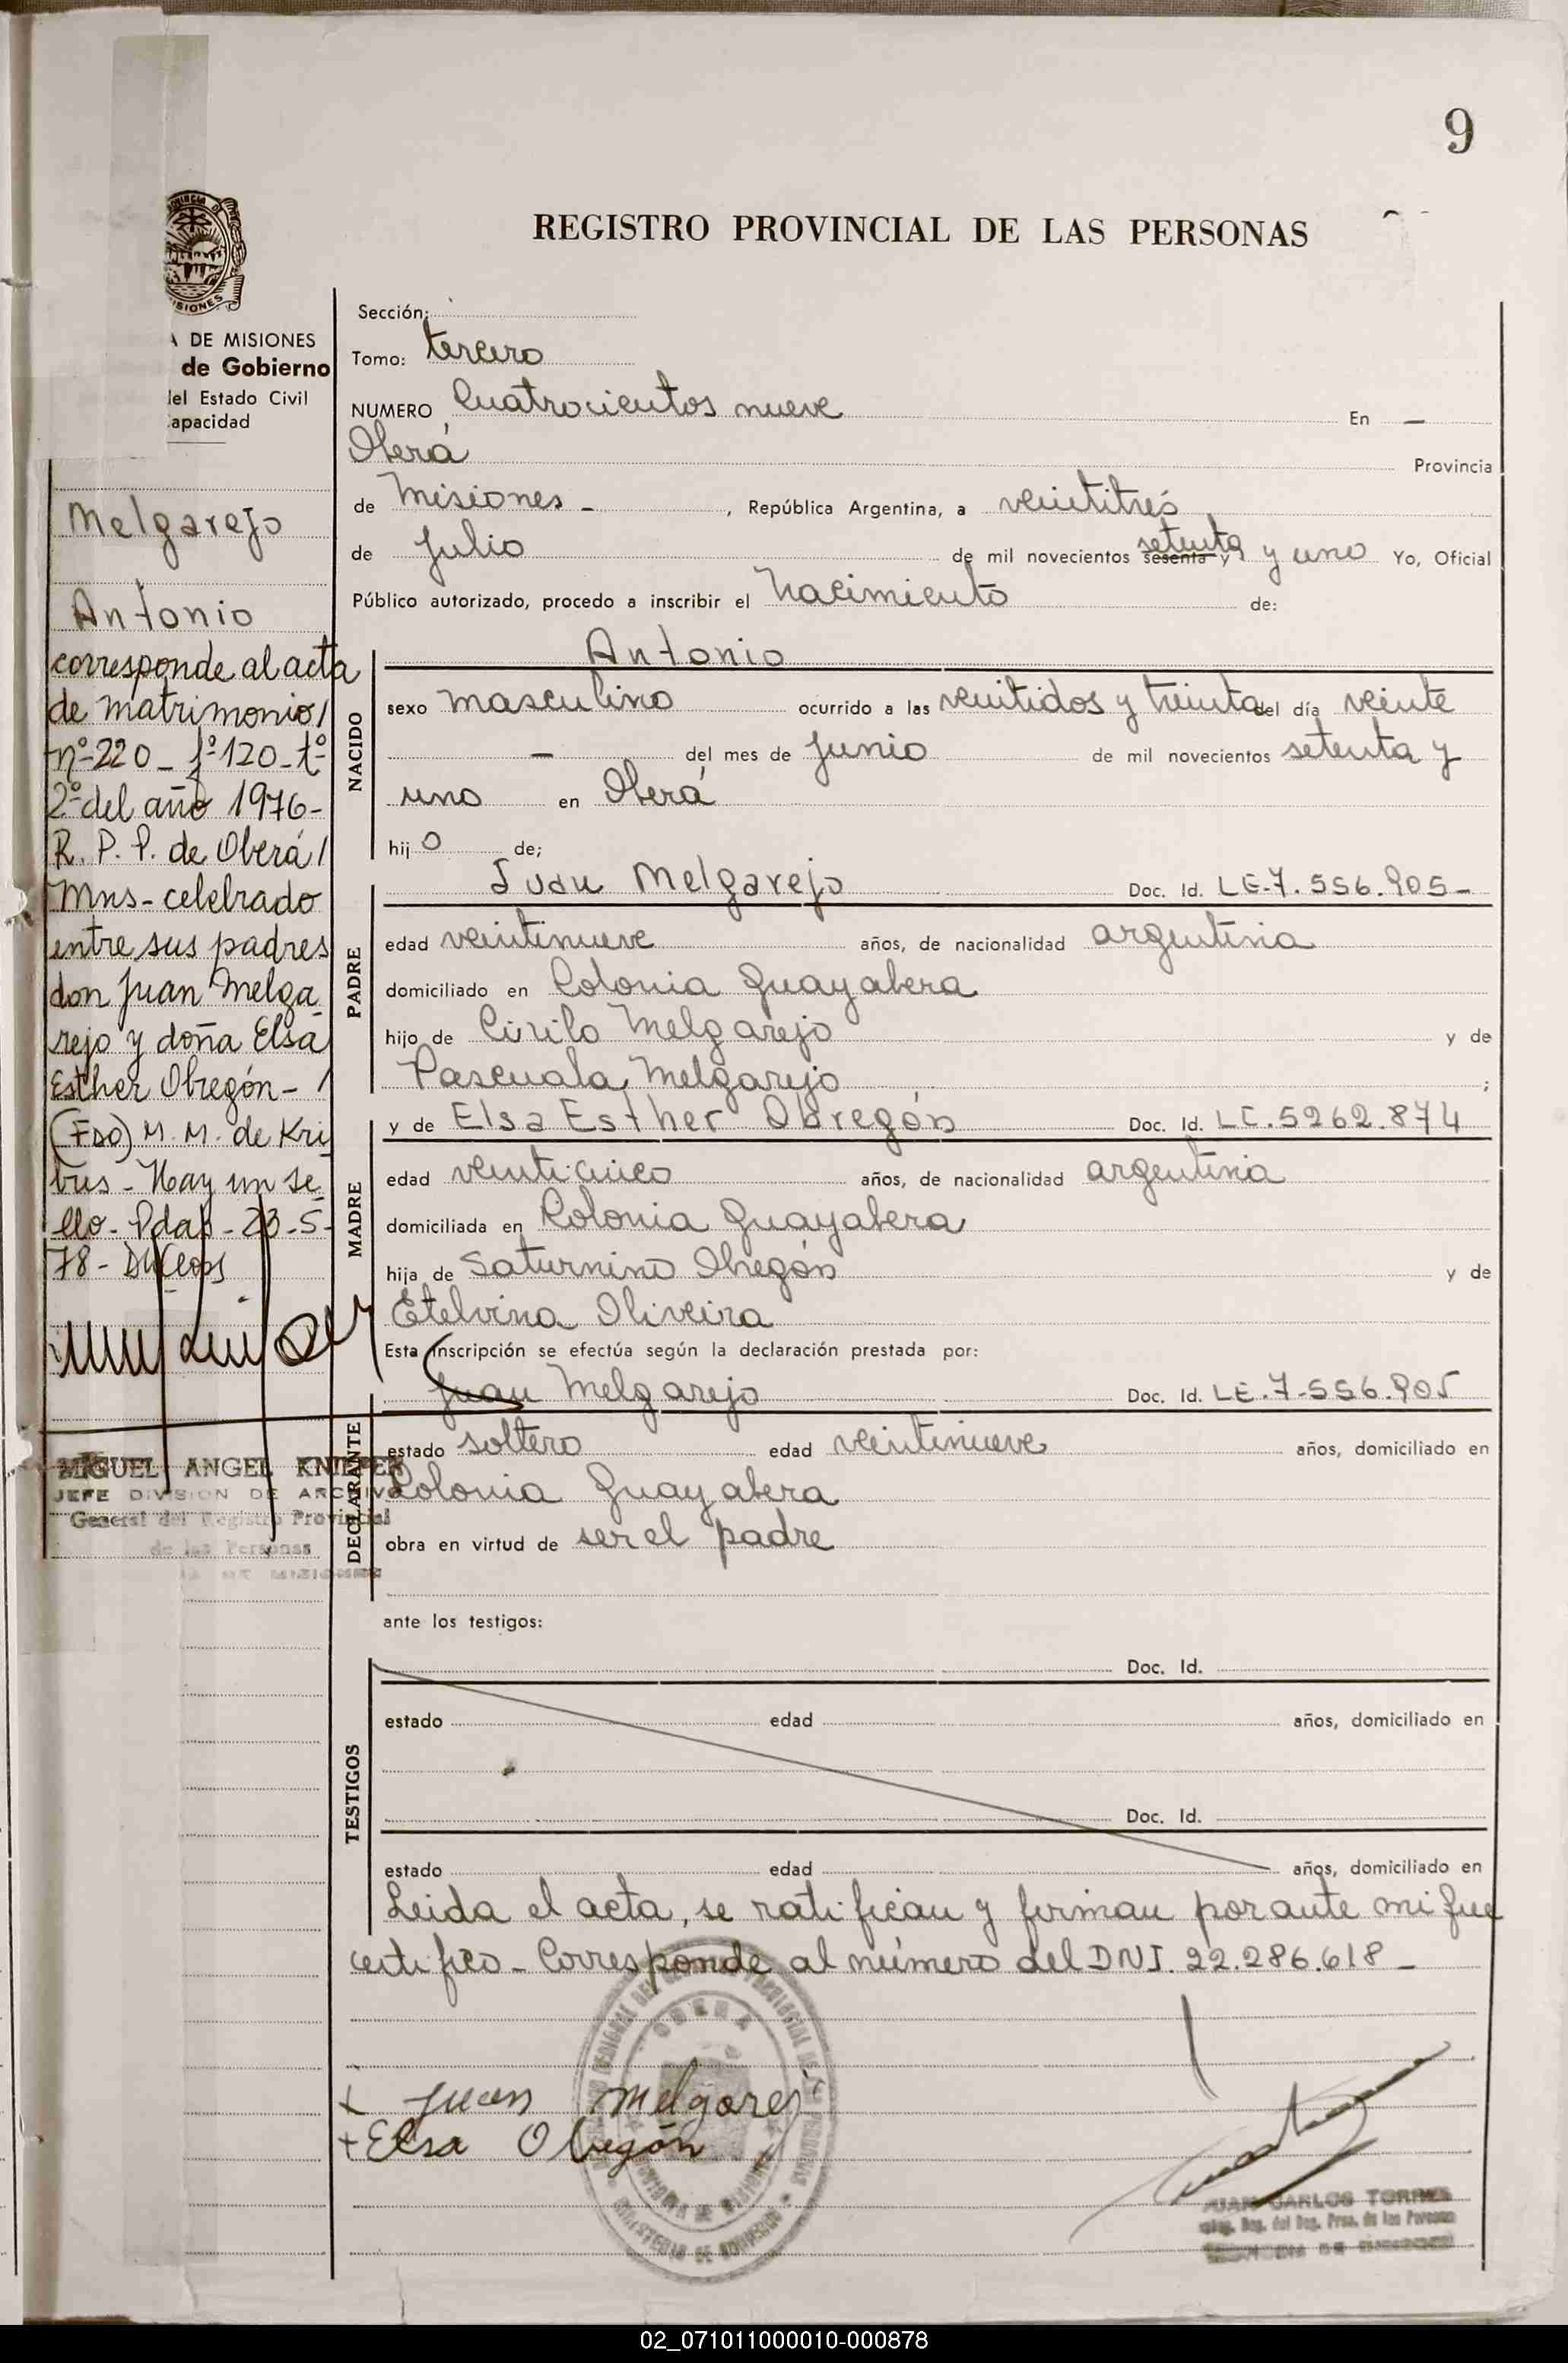 9
REGISTRO PROVINCIAL DE LAS PERSONAS
A DE MISIONES
de Gobierno
del Estado Civil
apacidad
Melgarejo
Antonio
corresponde al acta
de matrimonio/
nº-220_ fº120-tº
2º del año 1976-
R. P. P. de Oberá/
Mns-celebrado
entre sus padres
don Juan Melga
rejo y doña Elsa
Esther Obregón- /
(Fdo) M. M. de Kri
bus - Hay un se
llo- Pdas-23-5-
78-
MIGUEL ANGEL KNIEPER
JEFE DIVISION DE ARCHIVO
General del Registro Provincial
de las Personas
DE MISIONES
Sección:
Tomo: tercero
NUMERO Cuatrocientos nueve En -
Oberá Provincia
de Misiones - , República Argentina, a veintitrés
de Julio de mil novecientos sesenta y setenta y uno Yo, Oficial
Público autorizado, procedo a inscribir el Nacimiento de:
NACIDO
Antonio
sexo masculino ocurrido a las veintidos y treinta del día veinte
- del mes de Junio de mil novecientos setenta y
uno en Oberá
hijo de;
PADRE
Juan Melgarejo Doc. Id. LE-7.556.905-
edad veintinueve años, de nacionalidad argentina
domiciliado en Colonia Guayabera
hijo de Cirilo Melgarejo y de
Pascuala Melgarejo ;
MADRE
y de Elsa Esther Obregón Doc. Id. LC.5262.874
edad veinticinco años, de nacionalidad argentina
domiciliada en Colonia Guayabera
hija de Saturnino Obregón y de
Etelvina Oliveira
Esta inscripción se efectúa según la declaración prestada por:
DECLARANTE
Juan Melgarejo Doc. Id. LE.7-556.905
estado soltero edad veintinueve años, domiciliado en
Colonia Guayabera
obra en virtud de ser el padre
ante los testigos:
TESTIGOS
Doc. Id.
estado edad años, domiciliado en
Doc. Id.
estado edad años, domiciliado en
Leida el acta, se ratifican y firman por ante mi que
certifico - Corresponde al número del DNI. 22.286.618 -
x Juan Melgarejo
+ Elsa Obregón
JUAN CARLOS TORRES
02_071011000010-000878